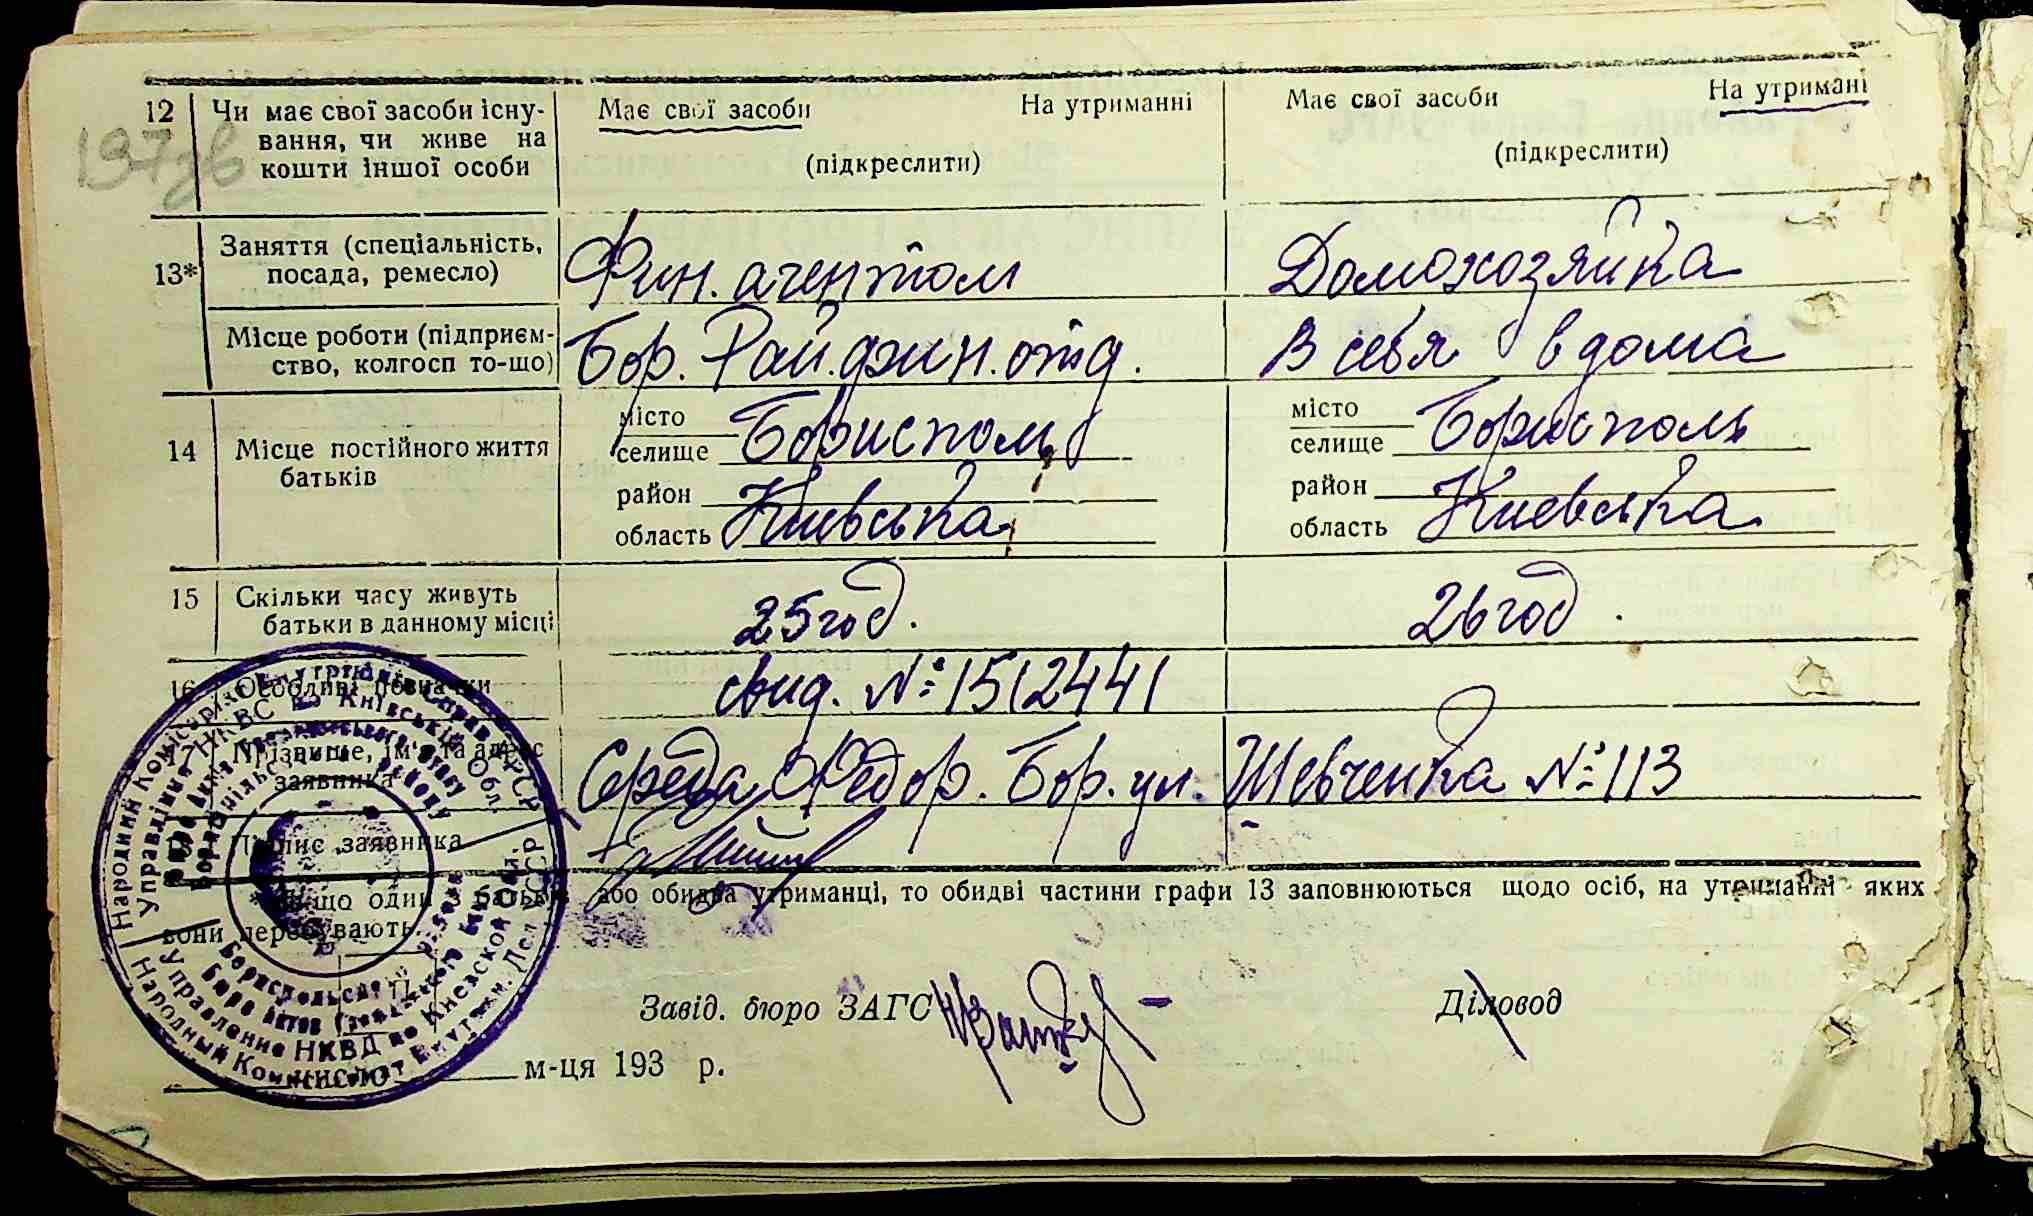 12 Чи має свої засоби існу- Має свої засоби На утриманні Має свої засоби На утримані
вання, чи живе на
кошти іншої особи (підкреслити) (підкреслити)
197зв
Заняття (спеціальність, Фин. агентом Домохозяйка
13* посада, ремесло)
Місце роботи (підприєм- Бор. Рай.фин.отд. В себя вдома
ство, колгосп то-що)
місто Борисполь місто Борисполь
14 Місце постійного життя селище селище
батьків
район район
область Киевська область Киевська
15 Скільки часу живуть 25 год. 26 год.
батьки в данному місці
16 Особливі позначки свид. №1512441
17 Прізвище, ім'я та адрес Середа Федор. Бор. ул. Шевченка №113
заявника
Підпис заявника
* Якщо один з батьків або обидва утриманці, то обидві частини графи 13 заповнюються щодо осіб, на утриманні яких
вони перебувають.
Завід. бюро ЗАГС Діловод
число м-ця 193 р.
Народний Комісаріат Внутрішніх Справ УРСР
Управління НКВС по Київській Обл.
Народный Комиссариат Внутрен. Дел УССР
Управление НКВД по Киевской Обл.